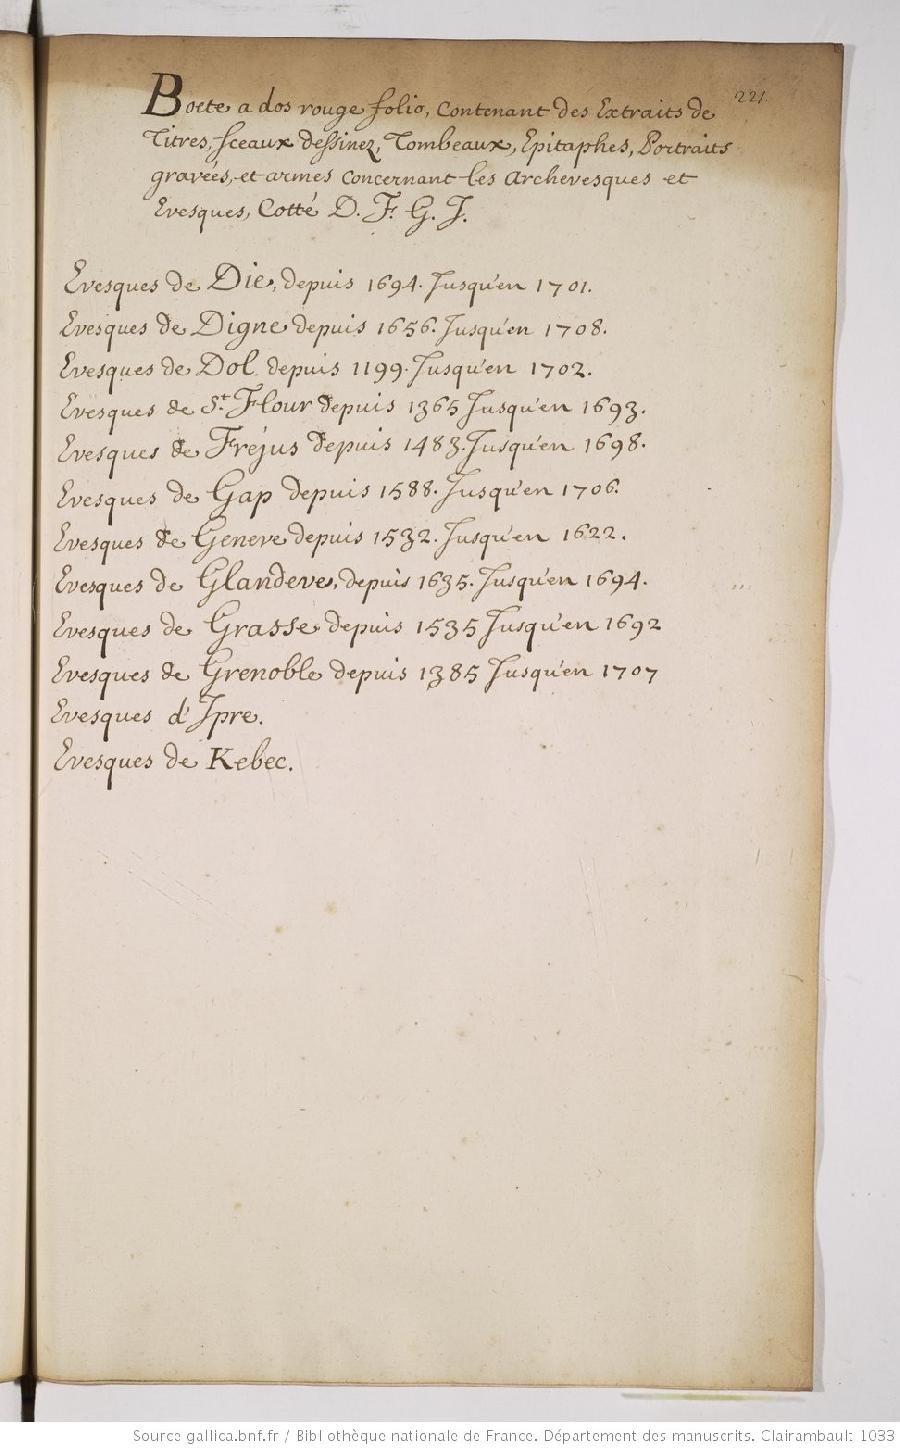 221.
Boete a dos rouge folio, contenant des Extraits de
Titres, sceaux dessinez, Tombeaux, Epitaphes, Portraits
gravées, et armes concernant les archevesques et
Evesques, Cotté D. F. G. J.
Evesques de Die, depuis 1694. Jusqu'en 1701.
Evesques de Digne depuis 1656. Jusqu'en 1708.
Evesques de Dol depuis 1199. Jusqu'en 1702.
Evesques de St. Flour depuis 1365 Jusqu'en 1693.
Evesques de Fréjus depuis 1483. Jusqu'en 1698.
Evesques de Gap depuis 1588. Jusqu'en 1706.
Evesques de Geneve depuis 1532. Jusqu'en 1622.
Evesques de Glandeves, depuis 1635. Jusqu'en 1694.
Evesques de Grasse depuis 1535 Jusqu'en 1692
Evesques de Grenoble depuis 1385 Jusqu'en 1707
Evesques d'Ipre.
Evesques de Kebec.
Source gallica.bnf.fr / Bibliothèque nationale de France. Département des manuscrits. Clairambault 1033